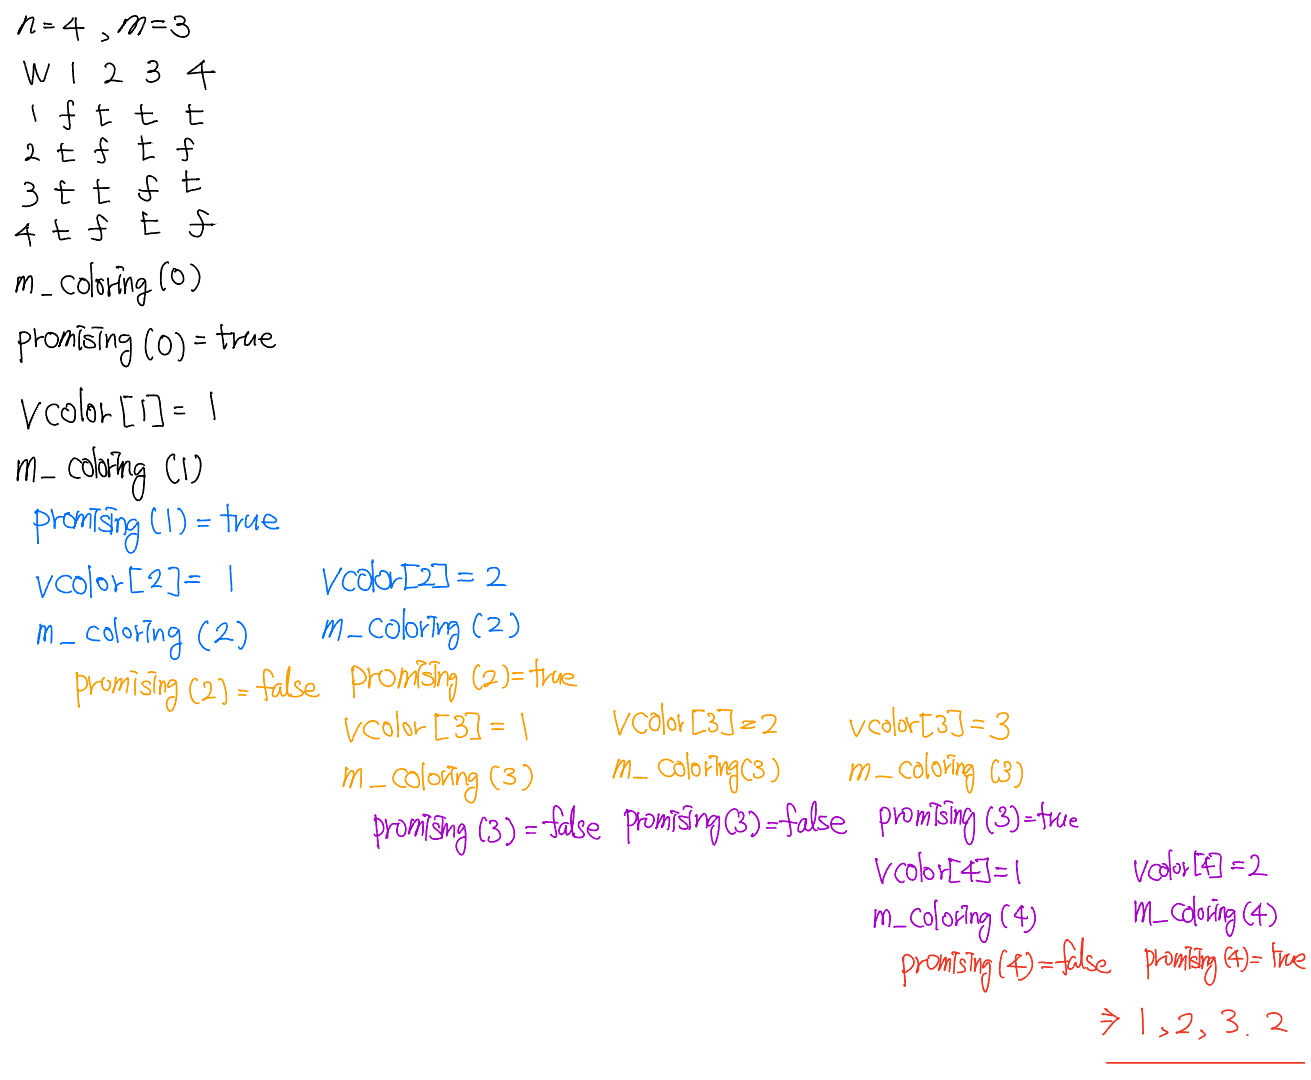 n=4, m=3
W 1 2 3 4
1 f t t t
2 t f t f
3 t t f t
4 t f t f
m_coloring(0)
promising(0)=true
vcolor[1]= 1
m_coloring (1)
promising(1)=true
vcolor[2]= 1 vcolor[2]=2
m_coloring (2) m_coloring (2)
promising(2)=false promising(2)=true
vcolor[3]=1 vcolor[3]=2 vcolor[3]=3
m_coloring(3) m_coloring(3) m_coloring (3)
promising(3)=false promising(3)=false promising(3)=true
vcolor[4]=1 vcolor[4]=2
m_coloring(4) m_coloring(4)
promising(4)=false promising(4)=true
⇒ 1, 2, 3. 2